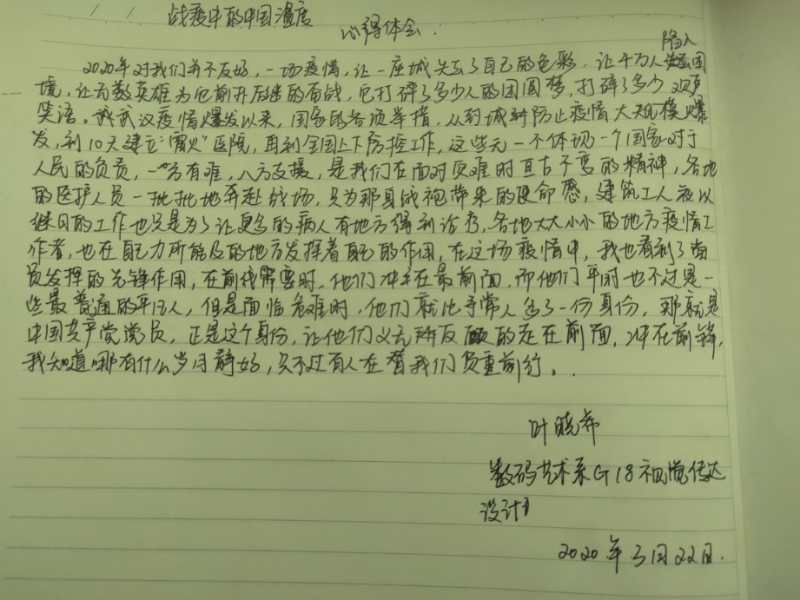 战疫中的中国温度
心得体会
2020年对我们并不友好,一场疫情,让一座城失去了自己的色彩,让千万人陷入困
境,让无数英雄为它前赴后继的奋战,它打碎了多少人的团圆梦,打碎了多少欢声
笑语。我武汉疫情爆发以来,国家的各项举措,从封城到防止疫情大规模爆
发,到10天建起"雷火"医院,再到全国上下防控工作,这些无一不体现一个国家对于
人民的负责,一方有难,八方支援,是我们在面对灾难时亘古不变的精神,各地
的医护人员一批批地奔赴战场,只为那身战袍带来的使命感,建筑工人夜以
继日的工作也只是为了让更多的病人有地方得到治疗,各地大大小小的地方疫情工
作者,也在自己力所能及的地方发挥着自己的作用,在这场疫情中,我也看到了党
员发挥的先锋作用,在前线需要时,他们冲在最前面,而他们平时也不过是一
些最普通的平凡人,但是面临危难时,他们就比寻常人多了一份身份,那就是
中国共产党党员,正是这个身份,让他们义无所反顾的走在前面,冲在前锋,
我知道哪有什么岁月静好,只不过有人在替我们负重前行。
叶晓希
数码艺术系G18视觉传达
设计1
2020年3月22日.